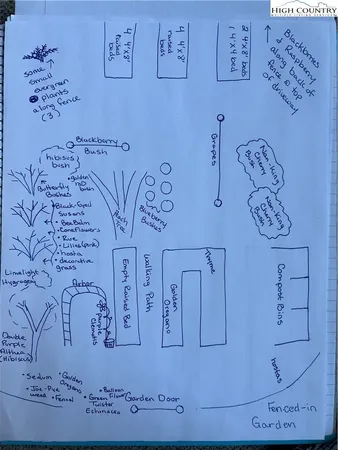 HIGH COUNTRY
4 4'x8'
raised
beds
4 4'x8'
raised
beds
2 4'x8' beds
1 4'x4' bed
Blackberries
& Raspberry
along back of
fence @ top
of driveway
some
small
evergreen
plants
along fence
(3)
Blackberry
Bush
hibiscus
bush
Butterfly
Bushes
golden
bush
Grapes
Nan-King
Cherry
Bush
Nan-King
Cherry
Bush
Blueberry
Bushes
• Black-Eyed
Susans
• Bee Balm
• Coneflowers
• Rue
• Lilies (pink)
• hosta
• decorative
grass
Limelight
Hydrangea
Arbor
Purple
Clematis
Empty Raised Bed
Walking Path
Golden
Oregano
Thyme
Compost Bins
Double
Purple
Althea
(Hibiscus)
hostas
• Sedum
• Joe-Pye
weed
• Golden
Oregano
• Fennel
• Balloon
Flower
• Green
Twister
Echinacea
Garden Door
Fenced-in
Garden